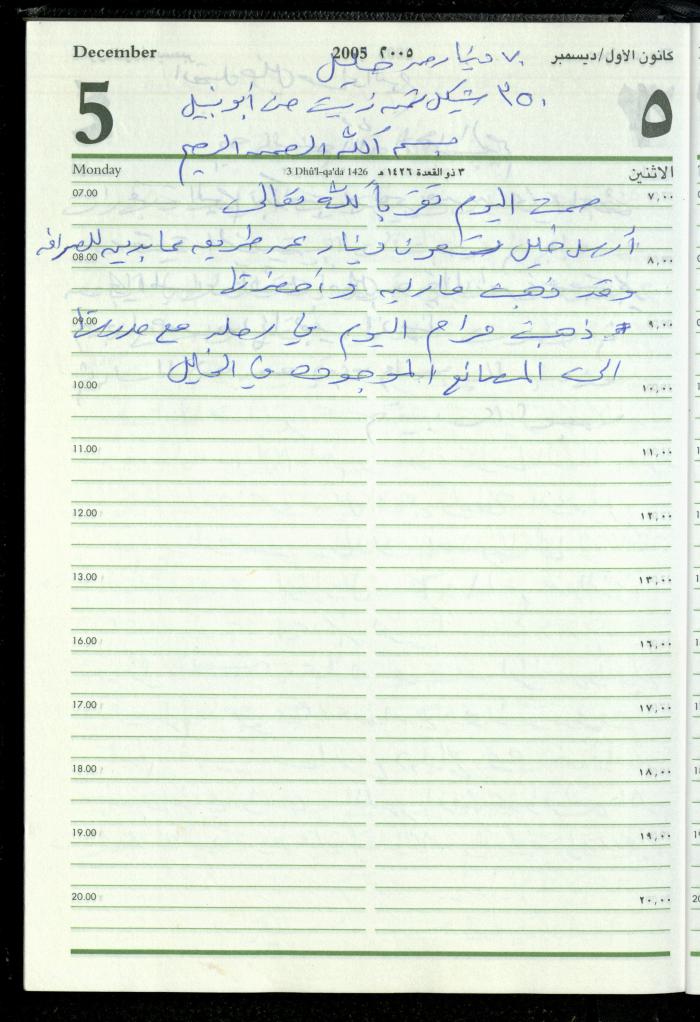 December 2005 ٢٠٠٥ كانون الاول/ديسمبر
٧٠ دينار من خليل
5 ٥
٣٥٠ شيكل ثمن زيت من أبو نبيل
بسم الله الرحمن الرحيم
Monday 3 Dhûl-qa'da 1426 ٣ ذو القعدة ١٤٢٦ هـ الاثنين
07.00 ٧,٠٠
صمت اليوم تقرباً لله تعالى
أرسل خليل سبعون دينار عن طريق عابدين للصرافة
08.00 ٨,٠٠
وقد ذهبت مارليه وأحضرتها
09.00 ٩,٠٠
* ذهبت مرام اليوم في رحله مع مدرستها
الى المصانع الموجوده في الخليل
10.00 ١٠,٠٠
11.00 ١١,٠٠
12.00 ١٢,٠٠
13.00 ١٣,٠٠
16.00 ١٦,٠٠
17.00 ١٧,٠٠
18.00 ١٨,٠٠
19.00 ١٩,٠٠
20.00 ٢٠,٠٠